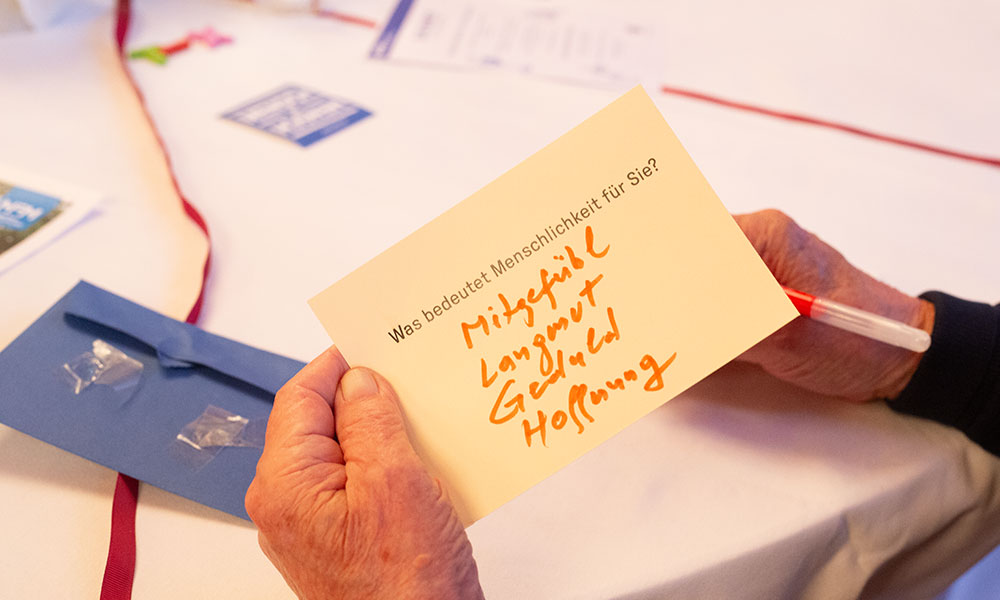 Was bedeutet Menschlichkeit für Sie?
Mitgefühl
Langmut
Geduld
Hoffnung